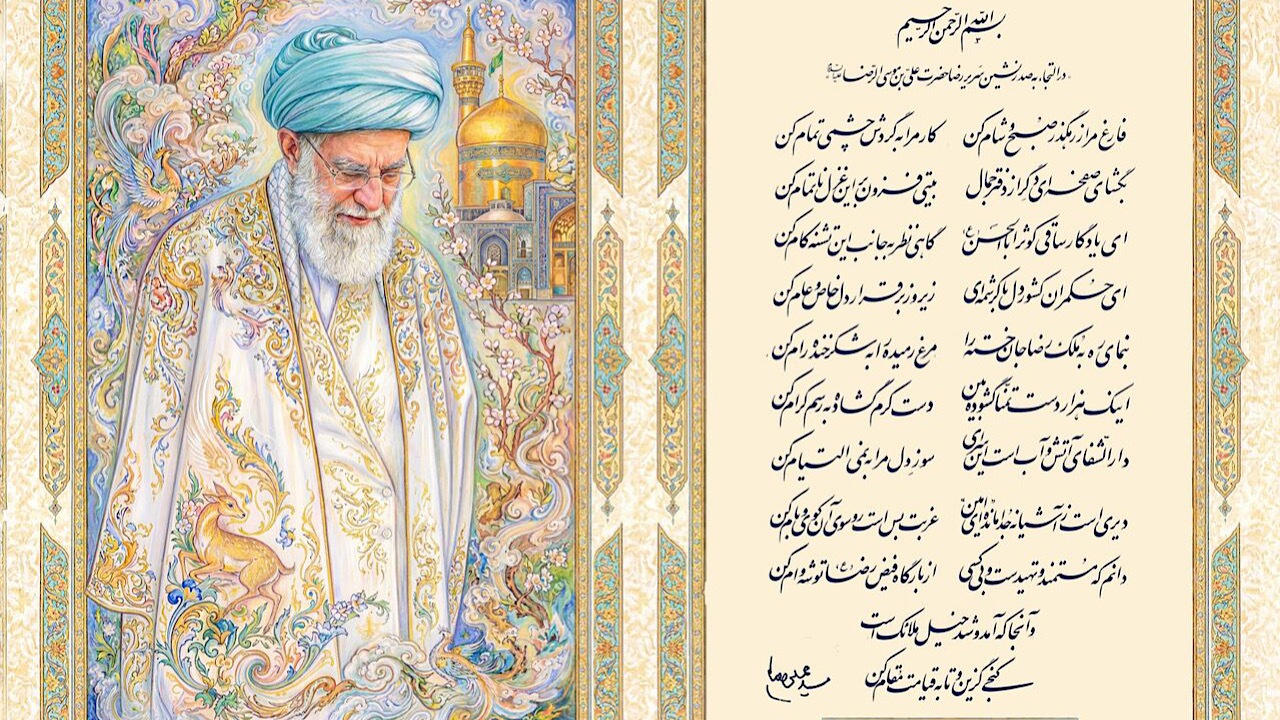 بسم الله الرحمن الرحیم
در التجاء به صدرنشین سریر رضا حضرت علی بن موسی الرضا علیه‌السلام
فارغ مرا ز رهگذر صبح و شام کن کار مرا به گردش چشمی تمام کن
بگشای صفحه‌ای دگر از دفتر جمال بیتی فزون بر این غزل ناتمام کن
ای یادگار ساقی کوثر اباالحسن (ع) گاهی نظر به جانب این تشنه کام کن
ای حکمران کشور دل با کرشمه‌ای زیر و زبر قرار دل خاص و عام کن
بنمای ره به ملک رضا جان خسته را مرغ رمیده را به شکرخنده رام کن
اینک هزار دست تمنا گشوده بین دست کرم گشاده به رسم کرام کن
دارالشفای آتش و آب است این سرای سوز دل مرا به نمی التیام کن
دیری است ز آشیانه جدا مانده‌ای امین غربت بس است روسوی آن کوی و بام کن
دانم که مستمند و تهیدست و بی‌کسی از بارگاه فیض رضا (ع) توشه وام کن
وآنجا که آمد و شد خیل ملائک است
کنجی گزین و تا به قیامت مقام کن